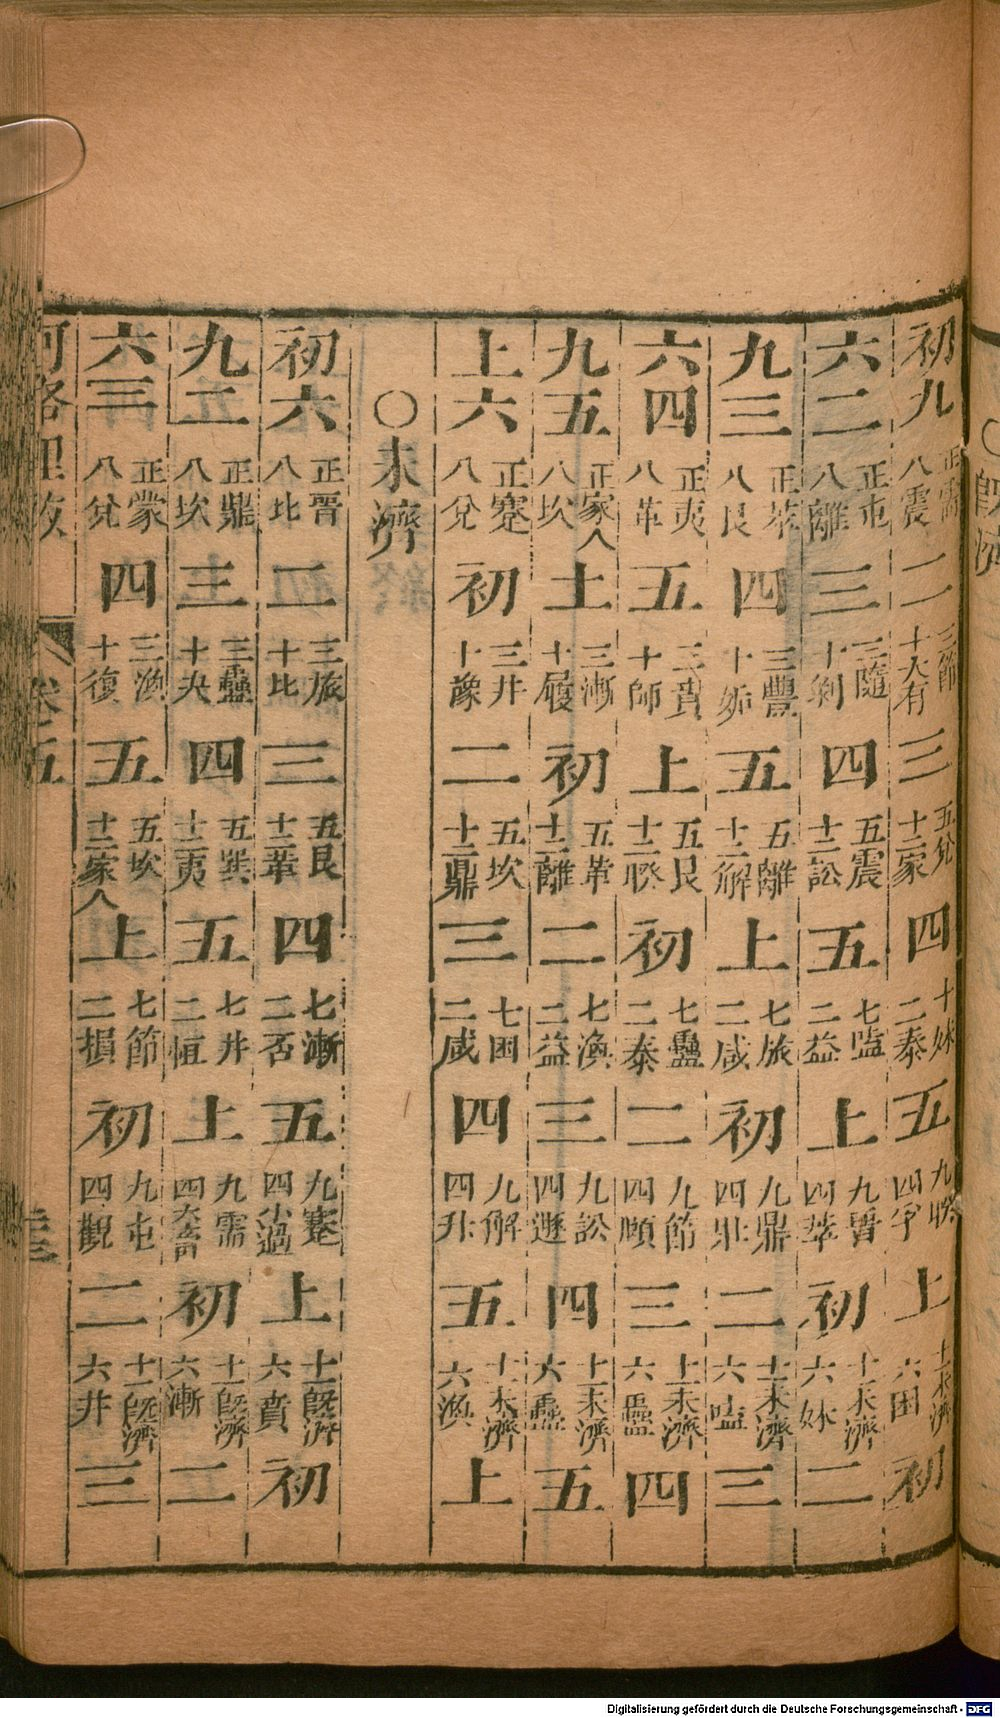 ○既濟
初九 正需 八震 二 三節 十大有 三 五兌 十二家 四 七妹 二泰 五 九睽 四孚 上 十一未濟 六困 初
六二 正屯 八離 三 三隨 十剝 四 五震 十二訟 五 七嗑 二益 上 九晉 四萃 初 十一未濟 六妹 二
九三 正萃 八艮 四 三豐 十姤 五 五離 十二解 上 七旅 二咸 初 九鼎 四壯 二 十一未濟 六嗑 三
六四 正夷 八革 五 三賁 十師 上 五艮 十二睽 初 七蠱 二泰 二 九節 四頤 三 十一未濟 六蠱 四
九五 正家人 八坎 上 三漸 十履 初 五革 十二離 二 七渙 二益 三 九訟 四遯 四 十一未濟 六蠱 五
上六 正蹇 八兌 初 三井 十豫 二 五坎 十二鼎 三 七困 二咸 四 九解 四升 五 十一未濟 六渙 上
○未濟
初六 正晉 八比 二 三旅 十比 三 五艮 十二革 四 七漸 二否 五 九蹇 四小過 上 十一既濟 六賁 初
九二 正鼎 八坎 三 三蠱 十夬 四 五巽 十二夷 五 七井 二恒 上 九需 四大畜 初 十一既濟 六漸 二
六三 正蒙 八兌 四 三渙 十復 五 五坎 十二家人 上 七節 二損 初 九屯 四觀 二 十一既濟 六井 三
河洛理數 卷五
Digitalisierung gefördert durch die Deutsche Forschungsgemeinschaft - DFG